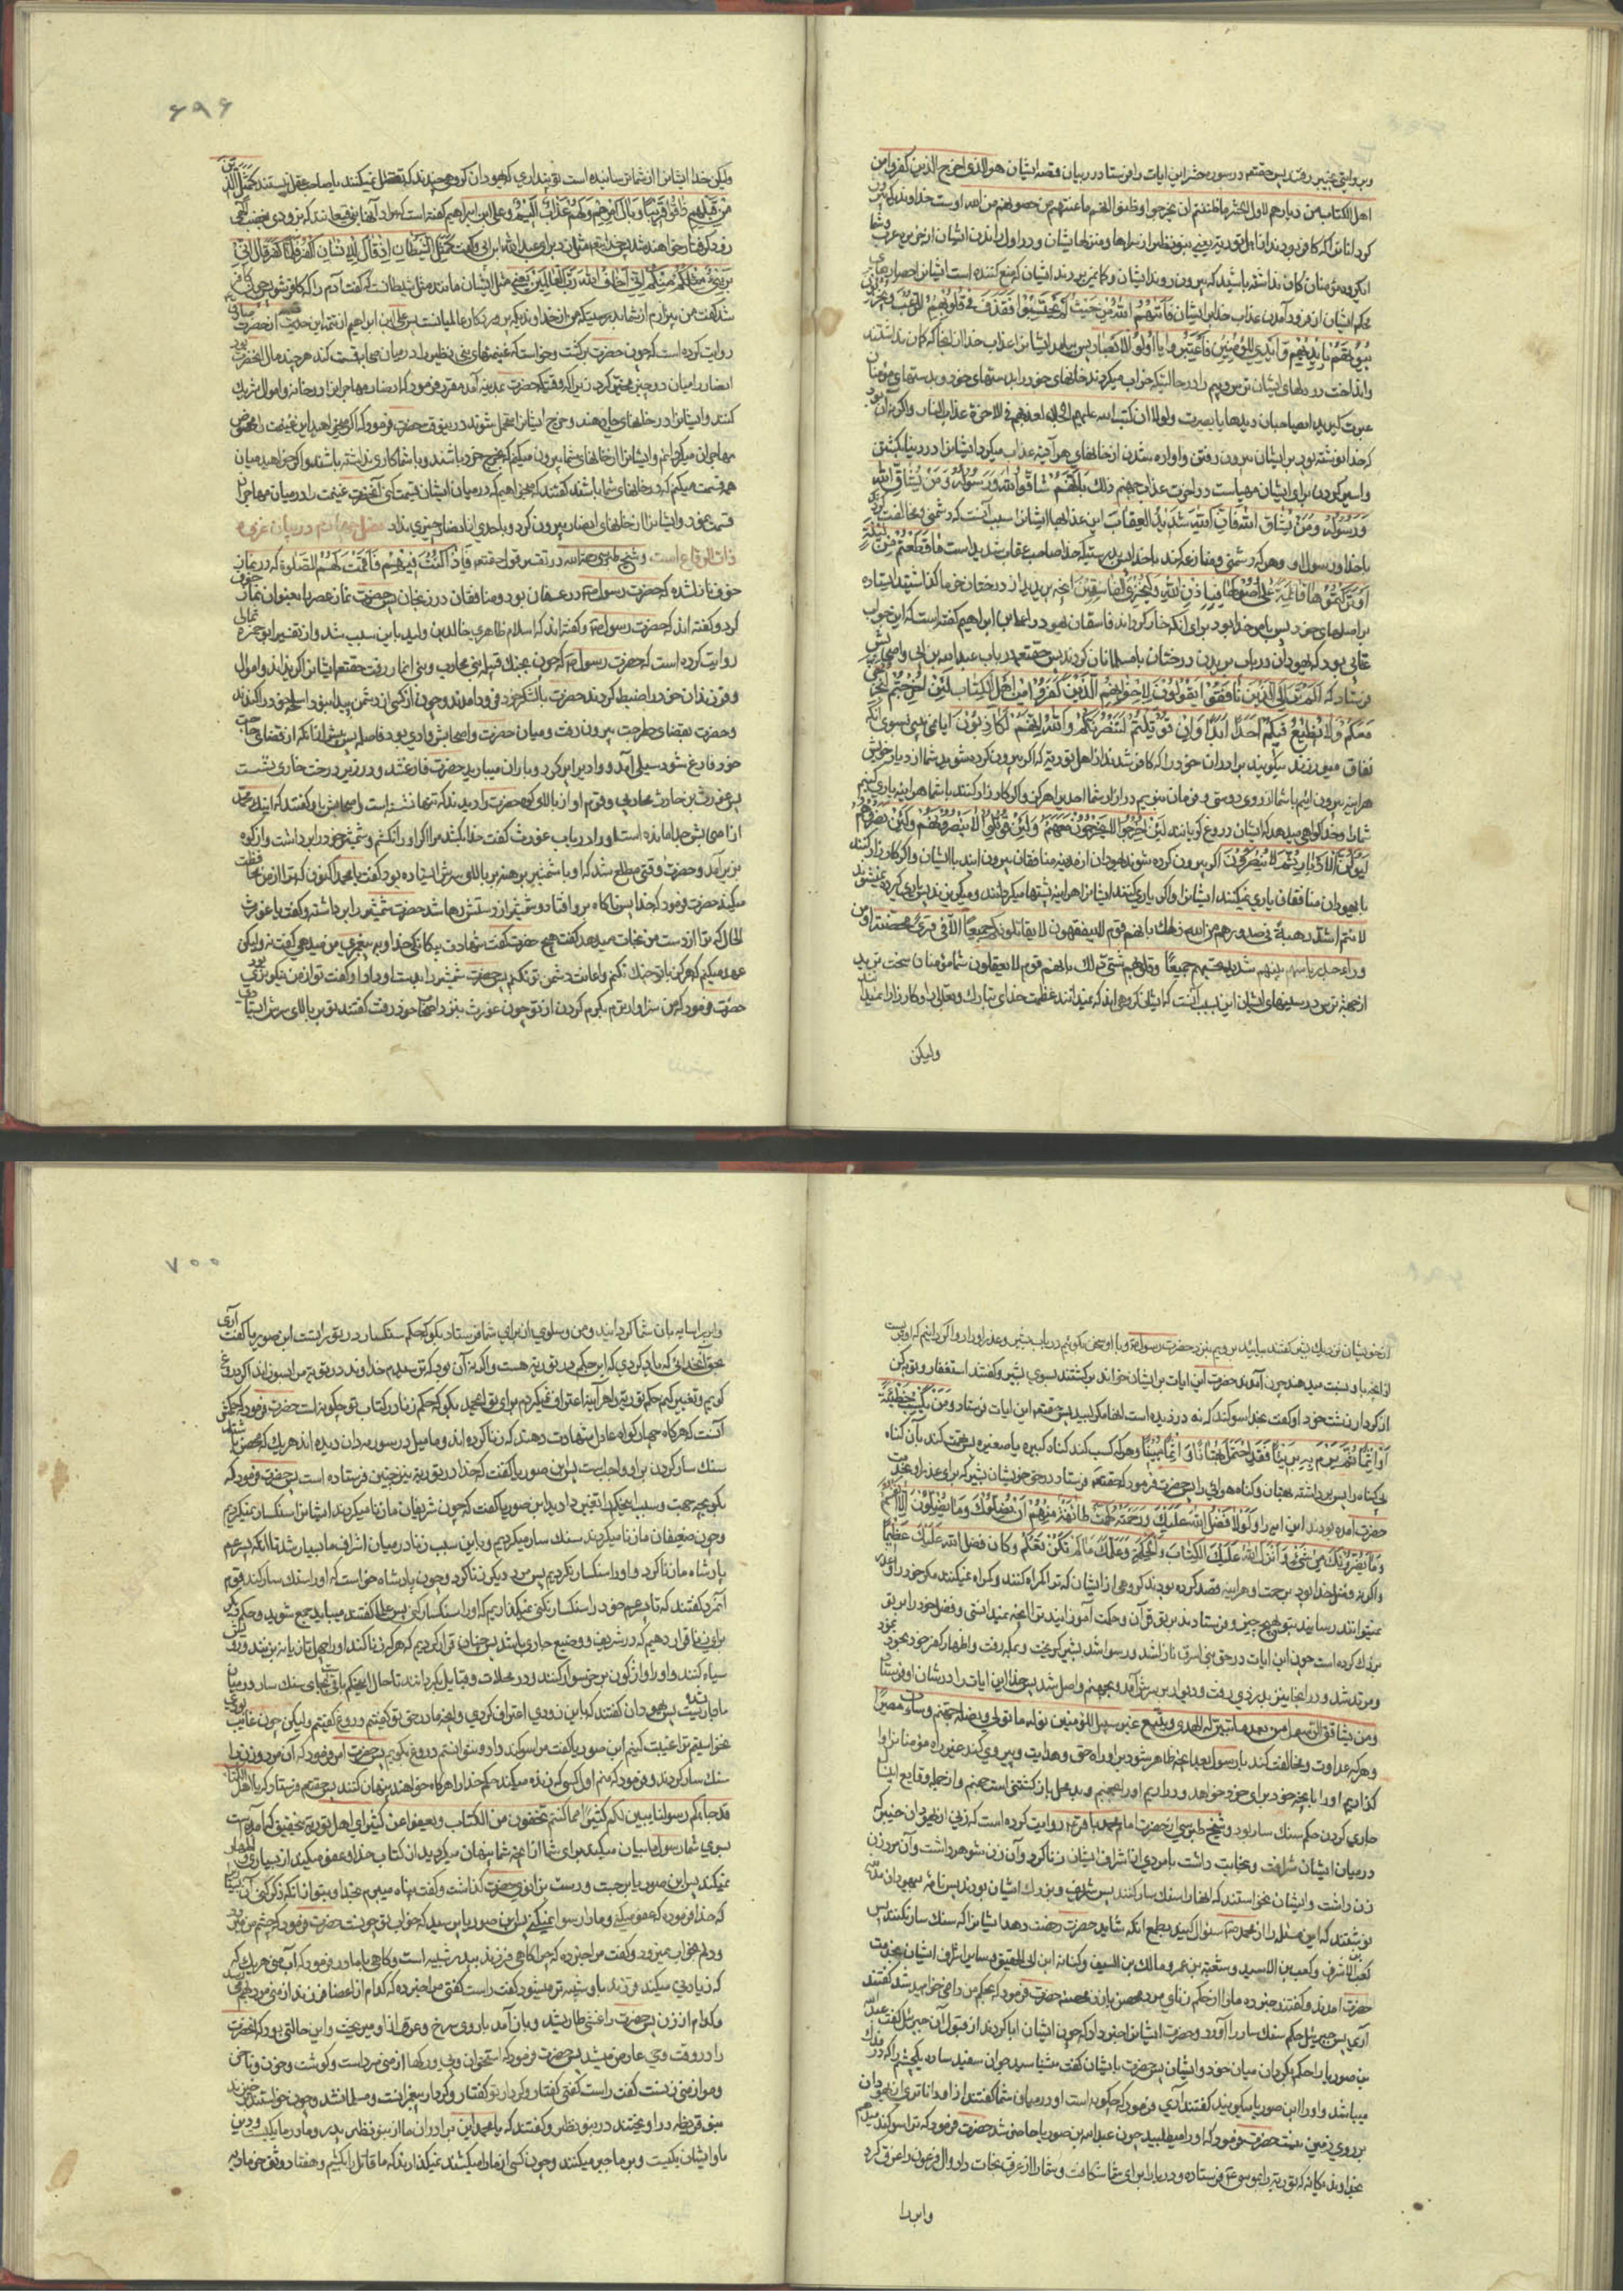 وبروایتی بخیبر رفتند پس حقتعالی در سوره حشر این ایات را فرستاد در بیان قصه ایشان هو الذی اخرج الذین کفروا من
اهل الکتاب من دیارهم لاول الحشر ما ظننتم ان یخرجوا وظنوا انهم مانعتهم حصونهم من الله اوست خداوندیکه بیرون
کرد انانرا که کافر بودند از اهل توریة یعنی بنو نظیر از سراها ومنزلهای ایشان در اول راندن ایشان از جزیره عرب وشما
ای گروه مؤمنان کان نداشته باشید که بیرون روند ایشان وکان میبردند ایشان که منع کننده است ایشانرا حصارهای
محکم ایشان از فرود آمدن عذاب خدا بر ایشان فَاَتٰهُمُ اللّٰهُ مِنْ حَیْثُ لَمْ یَحْتَسِبُوْا وَقَذَفَ فِیْ قُلُوْبِهِمُ الرُّعْبَ یُخْرِبُوْنَ
بُیُوْتَهُمْ بِاَیْدِیْهِمْ وَاَیْدِی الْمُؤْمِنِیْنَ فَاعْتَبِرُوْا یَا اُولِی الْاَبْصَارِ پس بیامد ایشانرا عذاب خدا از انجا که کان نداشتند
وانداخت در دلهای ایشان ترس وبیم را در حالتیکه خراب میکردند خانهای خود را بدستهای خود وبدستهای مؤمنان
عبرت گیرید ایصاحبان دیدهای بابصیرت ولولا ان کتب الله علیهم الجلاء لعذبهم فی الاخرة عذاب النار واگر نه آن بود
که خدا نوشته بود بر ایشان بیرون رفتن واواره شدن از خانهای هر آینه عذاب میکرد ایشانرا در دنیا بکشتن
واسیر کردن برای ایشان مهیاست در اخرت عذاب جهنم ذٰلِکَ بِاَنَّهُمْ شَاقُّوا اللّٰهَ وَرَسُوْلَهُ وَمَنْ یُّشَاقِّ اللّٰهَ
وَرَسُوْلَهُ وَمَنْ یُّشَاقِّ اللّٰهَ فَاِنَّ اللّٰهَ شَدِیْدُ الْعِقَابِ این عذابها ایشانرا بسبب آنست که دشمنی ومخالفت کردند
با خدا ورسول او وهر که دشمنی ومنازعه کند با خدا پس بدرستیکه خدا صاحب عقاب شدید است مَا قَطَعْتُمْ مِنْ لِیْنَةٍ
اَوْ تَرَکْتُمُوْهَا قَائِمَةً عَلٰی اُصُوْلِهَا فَبِاِذْنِ اللّٰهِ وَلِیُخْزِیَ الْفَاسِقِیْنَ انچه بریدید از درختان خرما یا گذاشتید ایستاده
بر اصلهای خود پس بامر خدا بود برای انکه خار گرداند فاسقان یهود را علی ابن ابراهیم گفته است که این جواب
عتابی بود که یهودان در باب بریدن درختان بامسلمانان کردند پس حقتعالی در باب عبدالله بن ابی واصحابش
فرستاد که اَلَمْ تَرَ اِلَی الَّذِیْنَ نَافَقُوْا یَقُوْلُوْنَ لِاِخْوَانِهِمُ الَّذِیْنَ کَفَرُوْا مِنْ اَهْلِ الْکِتَابِ لَئِنْ اُخْرِجْتُمْ لَنَخْرُجَنَّ
مَعَکُمْ وَلَا نُطِیْعُ فِیْکُمْ اَحَدًا اَبَدًا وَاِنْ قُوْتِلْتُمْ لَنَنْصُرَنَّکُمْ وَاللّٰهُ یَشْهَدُ اِنَّهُمْ لَکَاذِبُوْنَ ایا نمی بینی بسوی انانکه
نفاق میورزند میگویند برادران خود را که کافر شدند از اهل توریة که اگر بیرون کرده شوید شما از دیار خویش
هر اینه بیرون ائیم باشما از روی دوستی وفرمان نبریم در ازار شما احدیرا هرگز واگر کارزار کنند باشما هر اینه یاری کنیم
شما را وخدا گواهی میدهد که ایشان دروغ گویانند لَئِنْ اُخْرِجُوْا لَا یَخْرُجُوْنَ مَعَهُمْ وَلَئِنْ قُوْتِلُوْا لَا یَنْصُرُوْنَهُمْ وَلَئِنْ نَصَرُوْهُمْ
لَیُوَلُّنَّ الْاَدْبَارَ ثُمَّ لَا یُنْصَرُوْنَ اگر بیرون کرده شوند یهودان از مدینه منافقان بیرون ایند با ایشان واگر کارزار کنند
با یهودان منافقان یاری نمیکنند ایشانرا واگر یاری کنند ایشانرا هر اینه پشتها میگردانند ومیگریزند پس یاری کرده نمیشوند
لانتم اشد رهبة فی صدورهم من الله ذلک بانهم قوم لا یفقهون لا یقاتلونکم جمیعا الا فی قری محصنة او من
وراء جدر باسهم بینهم شدید تحسبهم جمیعا وقلوبهم شتی ذلک بانهم قوم لا یعقلون شما مؤمنان سخت ترید
از جهة ترس در سینهای ایشان این بسبب آنست که ایشان گروهی اند که نمیدانند عظمت خدای تبارک وتعالی را وکارزار نمیکنند
ولیکن
۶۹۶
ولیکن خدا ایشانرا از شما ترسانیده است تو پنداری که یهودان گروهی چندند که تعقل نمیکنند یا صاحب عقل نیستند کَمَثَلِ الَّذِیْنَ
مِنْ قَبْلِهِمْ قَرِیْبًا ذَاقُوْا وَبَالَ اَمْرِهِمْ وَلَهُمْ عَذَابٌ اَلِیْمٌ وعلی ابن ابراهیم گفته است که مراد آنها بنو قینقاعند که بزودی
کَمَثَلِ الشَّیْطَانِ اِذْ قَالَ لِلْاِنْسَانِ اکْفُرْ فَلَمَّا کَفَرَ قَالَ اِنِّیْ
بَرِیْءٌ مِنْکَ اِنِّیْ اَخَافُ اللّٰهَ رَبَّ الْعَالَمِیْنَ یعنی مثل ایشان مانند مثل شیطانست که گفت آدم را که کافر شو پس چون کافر
شد گفت من بیزارم از تو بدرستیکه من از خداوندیکه پروردگار عالمیانست پس علی ابن ابراهیم این حدیث از حضرت صادق
روایت کرده است که چون حضرت برگشت وخواست که غنیمتهای بنی نظیر را در میان صحابه قسمت کند هر چند مال انحضرت بود
انصار را میان دو چیز مخیر کرد زیرا که وقتیکه حضرت بمدینه آمد مقرر فرمود که انصار مهاجرانرا در خانه واموال شریک
کنند وایشانرا در خانهای جا دهند وخرج ایشانرا متحمل شوند در اینوقت حضرت فرمود که اگر میخواهید این غنیمت را مخصوص
مهاجران میگردانم وایشانرا از خانهای شما بیرون میکنم که بخرج خود باشند وباشما کاری نداشته باشند واگر خواهید میان
همه قسمت میکنم که در خانهای شما باشند گفتند که میخواهیم که در میان ایشان قسمت کنی آنحضرت غنیمت را در میان مهاجران
قسمت نمود وایشانرا از خانهای انصار بیرون کرد وباحدی از انصار چیزی نداد فصل در بیان غزوه
ذات الرقاع است وشیخ طبرسی رحمه الله در تفسیر قول حقتعالی فَاِذَا کُنْتَ فِیْهِمْ فَاَقَمْتَ لَهُمُ الصَّلٰوةَ که در نماز
خوف نازلشده که حضرت رسول در عسفان بود ومنافقان در زنجان پس حضرت نماز عصر را بعنوان نماز خوف
کرد وگفته اند که حضرت رسول وگفته اند که اسلام ظاهری خالد بن ولید باین سبب شد واز تفسیر ابوحمزه ثمالی
روایت کرده است که حضرت رسول که چون بجنگ قبیله بنی محارب وبنی انمار رفت حقتعالی ایشانرا گریزاند واموال
وفرزندان خود را ضبط کردند حضرت بالشکر خود فرود آمدند وچون از کسی از دشمن پیدا نبود اسلحه خود را کندند
وحضرت بقضای حاجت بیرون رفت ومیان حضرت واصحابش وادی بود فاصله پس پیش از انکه از قضای حاجت
خود فارغ شود سیلی آمد ووادی را پر کرد وباران میبارید حضرت فارغ شد ودر زیر درخت خاری نشست
پس غورث بن حارث محاربی وقوم او از بالای کوه حضرت را دیدند که تنها نشسته است واصحابش باو گفتند که اینک محمد
از اصحابش جدا مانده است او را دریاب غورث گفت خدا بکشد مرا اگر او را نکشم وشمشیر خود را برداشت واز کوه
بزیر آمد وحضرت وقتی مطلع شد که او باشمشیر برهنه بر بالای سرش ایستاده بود گفت یا محمد اکنون که ترا از من نجات
میدهد حضرت فرمود که خدا پس ناگاه بر رو افتاد وشمشیر از دستش رها شد حضرت شمشیر را برداشت وگفت یا غورث
الحال که ترا از دست من نجات میدهد گفت هیچ حضرت گفت شهادت بیگانگی خدا وپیغمبری من میدهی گفت نه ولیکن
عهد میکنم که هرگز با تو جنگ نکنم واعانت دشمن تو نکنم پس حضرت شمشیر را بدست او داد او گفت تو از من نیکوتری
حضرت فرمود که من سزاوارترم بکرم کردن از تو چون غورث بنزد اصحاب خود رفت گفتند تو بر بالای سرش ایستاده
۷۰۰
ازخویشان نزدیک بشیر گفتند بیائید برویم بنزد حضرت رسول وبا او سخن بگوئیم در باب بشیر وعذر او را واگردانیم که او نیست
از انچه باو نسبت میدهند چون آمدند حضرت این ایات بر ایشان خواند برگشتند بسوی بشیر وگفتند استغفار وتوبه کن
از کردار زشت خود او گفت بخدا سوگند که نه دزدیده است انها مگر لبید پس حقتعالی این ایات فرستاد وَمَنْ یَکْسِبْ خَطِیْئَةً
اَوْ اِثْمًا ثُمَّ یَرْمِ بِهِ بَرِیْئًا فَقَدِ احْتَمَلَ بُهْتَانًا وَاِثْمًا مُبِیْنًا وهر که کسب کند گناه کبیره یا صغیره پس تهمت کند بآن گناه
بی گناه را پس برداشته بهتان وگناه هویدائی را پس حضرت فرمود که حقتعالی فرستاد در حق خویشان بشیر که برای عذر او بخدمت
حضرت امده بودند این ایه را وَلَوْلَا فَضْلُ اللّٰهِ عَلَیْکَ وَرَحْمَتُهُ لَهَمَّتْ طَائِفَةٌ مِنْهُمْ اَنْ یُضِلُّوْکَ وَمَا یُضِلُّوْنَ اِلَّا اَنْفُسَهُمْ
وَمَا یَضُرُّوْنَکَ مِنْ شَیْءٍ وَاَنْزَلَ اللّٰهُ عَلَیْکَ الْکِتَابَ وَالْحِکْمَةَ وَعَلَّمَکَ مَا لَمْ تَکُنْ تَعْلَمُ وکان فضل الله علیک عظیما
واگر نه فضل خدا بود بر تو ورحمت او هر اینه قصد کرده بودند گروهی از ایشان که ترا گمراه کنند وگمراه نمیکنند مگر خود را
نمیتوانند رسانید بتو هیچ چیز وفرستاد بر تو قران وحکمت آموزانید ترا انچه نمیدانستی وفضل خود را بر تو
بزرگ کرده است چون این ایات در حق بنی ابیرق نازل شد ورسوا شد بشیر گریخت وبمکه رفت واظهار کفر خود نمود
ومرتد شد ودر انجا نیز بدزدی رفت ودیوار بر سرش آمد وبجهنم واصل شد پس خدا این ایات را در شان او فرستاد
ومن یشاقق الرسول من بعد ما تبین له الهدی ویتبع غیر سبیل المؤمنین نوله ما تولی ونصله جهنم وساءت مصیرا
وهر که عداوت ومخالفت کند با رسول بعد از انچه ظاهر شود بر او راه حق وهدایت وپیروی کند غیر راه مؤمنانرا وا
گذاریم او را بانچه خود برای خود خواهد ودر اریم او را بجهنم وبد محل بازگشتنی است جهنم واز جمله وقایع اینسال
جاری کردن حکم سنگ سار بود وشیخ طبرسی از حضرت امام محمد باقر روایت کرده است که زنی از یهودان خیبر که
در میان ایشان شرافت ونجابت داشت بامردی از اشراف ایشان زنا کرد وآن زن شوهر داشت وآن مرد زن
زن داشت وایشان نخواستند که انها را سنگ سار کنند پس نامه بیهودان مدینه
نوشتند که این مسئله را از محمد سئوال کنید بطمع انکه شاید حضرت رخصت دهد ایشانرا که سنگ سار نکنند پس
کعب بن الاشرف وکعب بن الاسید وشعبة بن عمرو ومالک بن الصیف وکنانه ابن ابی الحقیق وسایر اشراف ایشان بخدمت
حضرت امدند وگفتند خبر ده ما را از حکم زنای مرد محصن بازن محصنه حضرت فرمود ایا بحکم من راضی خواهید شد گفتند
آری پس جبرئیل حکم سنگ سار را آورد وحضرت ایشانرا اخبار داد که چون ایشان ابا کردند از قبول آن جبرئیل گفت عبدالله
بن صوریا را حکم بگردان میان خود وایشان پس حضرت بایشان گفت میشناسید جوان سفید ساده یکچشم را که در فدک
میباشد واو را ابن صوریا میگویند گفتند آری فرمود که چگونه است او در میان شما گفتند از او داناتری از یهودان
بر روی زمین نیست حضرت فرمود که او را میطلبید چون عبدالله بن صوریا حاضر شد حضرت فرمود که ترا سوگند میدهم
بخداوند یگانه که توریة را بموسی فرستاده ودریا را برای شما شکافت وشما را از غرق نجات داد وال فرعون را غرق کرد
وابر را
وابر را سایه بان شما گردانید ومن وسلوی از برای شما فرستاد بگو که حکم سنگسار در توریة هست ابن صوریا گفت آری
بحق آنخدائی که یاد کردی که این حکم در توریة هست واگر نه آن بود که ترسیدم خداوند در توریة مرا بسوزاند اگر دروغ
گویم وتغییر کنم حکم توریة را هر آینه اعتراف نمیکردم برای تو ای محمد بگو که حکم زنا در کتاب تو چگونه است حضرت فرمود که حکمش
آنست که هر گاه چهار گواه عادل شهادت دهند که زنا کرده اند وما میل در سورمه دان دیده اند هر یک که محصن باشند
سنگ سار کردن بر او واجب است پس ابن صوریا گفت که خدا در توریة نیز چنین فرستاده است پس حضرت فرمود که
بگو بچه جهت وسبب اینحکم را تغییر دادید ابن صوریا گفت که چون شریفان ما زنا میکردند ایشانرا سنگسار نمیکردیم
وچون ضعیفان ما زنا میکردند سنگ سار میکردیم وباین سبب زنا در میان اشراف ما بسیار شد تا آنکه پسر عم
پادشاه ما زنا کرد واو را سنگسار نکردیم پس مرد دیگر زنا کرد وچون پادشاه خواست که او را سنگ سار کند قوم
آنمرد گفتند که تا پسر عم خود را سنگسار نکنی نمیگذاریم که او را سنگسار کنی پس علما گفتند میباید جمع شوید وحکم دیگر
برای زنا قرار دهیم که در شریف ووضیع جاری باشد پس چنان قرار کردیم که هر که زنا کند او را چهل تازیانه بزنند ورویش
سیاه کنند واو را واژگون بر خر سوار کنند ودر محلات وقبایل بگردانند تا حال اینحکم باقیست بجای سنگ سار در میان
ما جاریست پس یهودان گفتند که باین زودی اعتراف کردی وانچه ما در حق تو گفتیم دروغ گفتیم ولیکن چون غایب بودی
نخواستیم ترا غیبت کنیم ابن صوریا گفت مرا سوگند داد ونتوانستم دروغ بگویم پس حضرت امر فرمود که آن مرد وزن را
سنگ سار کردند وفرمود که منم اول کسیکه زنده میکند حکم خدا را هر گاه خواهند پنهان کنند پس حقتعالی فرستاد که یا اهل الکتاب
قد جاءکم رسولنا یبین لکم کثیرا مما کنتم تخفون من الکتاب ویعفو عن کثیر ای اهل توریة بتحقیق که آمده است
بسوی شما رسول ما بیان میکند برای شما از انچه شما پنهان میکردید از کتاب خدا وعفو میکند از بسیاری واظهار
نمیکند پس ابن صوریا برجست ودست بزانوی حضرت گذاشت وگفت پناه میبرم بخدا وبتو از انکه ذکر کنی آن بسیار را
که خدا فرموده که عفو میکنی وما را رسوا نمیکنی پس ابن صوریا پرسید که خواب تو چونست حضرت فرمود که چشم من میرود
ودلم بخواب نمیرود وگفت مرا خبر ده که چرا گاهی فرزند بپدر شبیه است وگاهی بمادر فرمود که آب منی هر یک که
که زیادتی میکند فرزند باو شبیه تر میشود گفت راست گفتی مرا خبر ده که کدام از اعضای فرزند از منی مرد بهم میرسد
وکدام از زن پس حضرت را غشی طاری شد وباز آمد باروی سرخ وعرق از او میریخت واین حالتی بود که انحضرت
را در وقت وحی عارض میشد پس حضرت فرمود که استخوان وپی ورگها از منی مرد است وگوشت وخون وناخن
وموی از منی زنست گفت راست گفتی گفتار وکردار تو گفتار وکردار پیغمبرانست ومسلمان شد وچون خواستند برخیزند
بنو قریظه در آویختند در بنو نظیر وگفتند که یا محمد این برادران ما از بنو نظیر پدر ومادر ما یکیست ودین
ما وایشان یکیست وبر ما جبر میکنند وچون کسی از ما را میکشند نمیگذارند که ما قاتل را بکشیم وهفتاد وسق خرما دیه